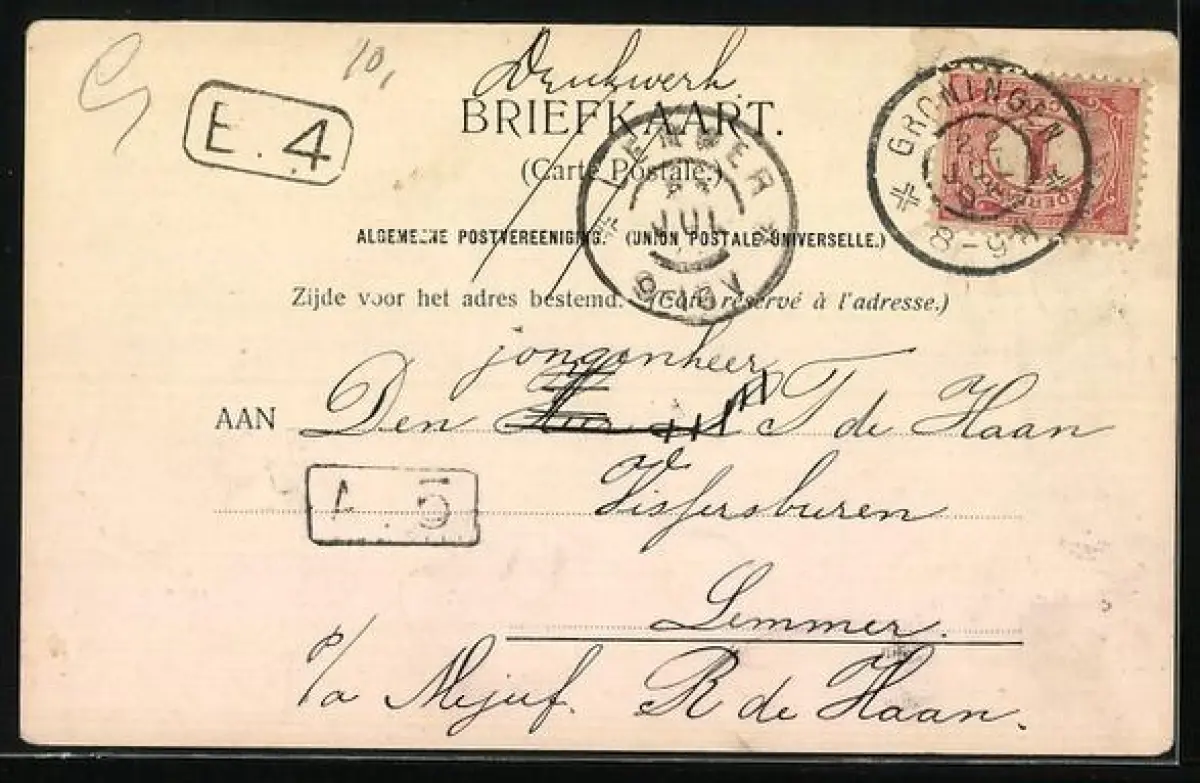 10,
Drukwerk.
E. 4
BRIEFKAART.
(Carte Postale.)
GRONINGEN
8-9 N
LEMMER
JUL
ALGEMEENE POSTVEREENIGING. (UNION POSTALE UNIVERSELLE.)
Zijde voor het adres bestemd. (Côté réservé à l'adresse.)
jongenheer
AAN Den Heer T de Haan
Vissersburen
5
Lemmer.
p/a Mejuf. R de Haan.